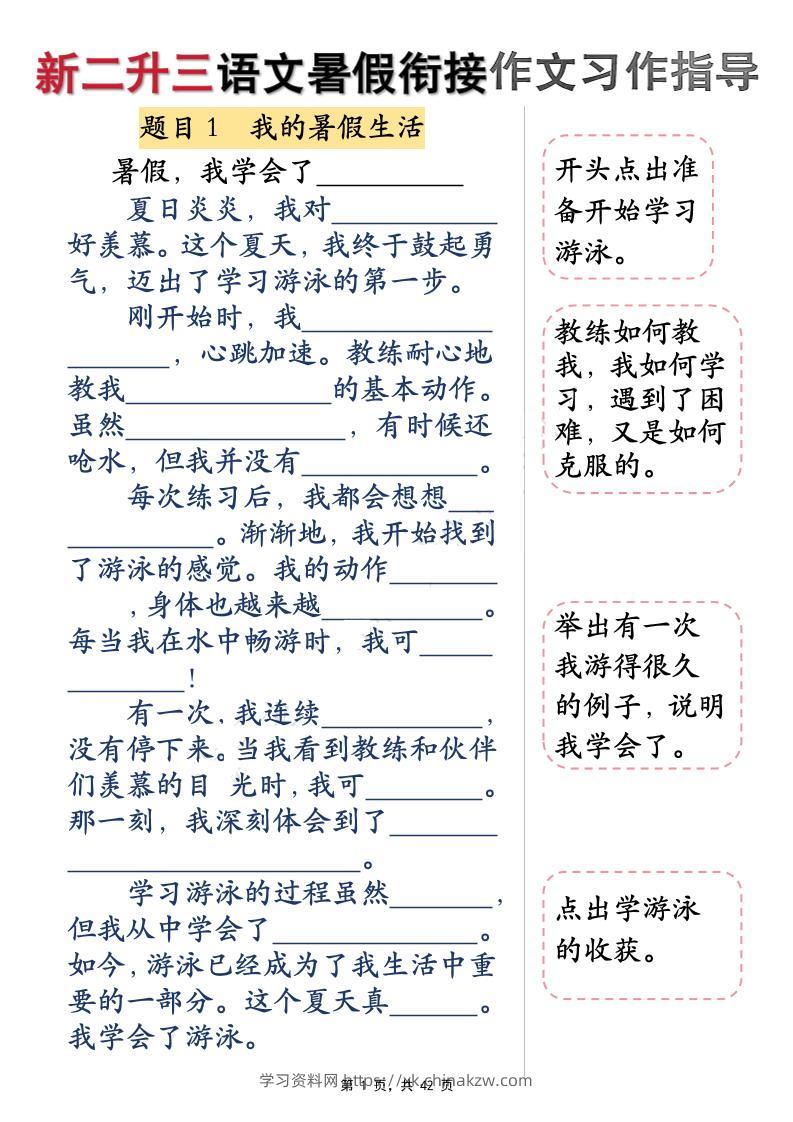 新二升三语文暑假衔接作文习作指导
题目1 我的暑假生活
暑假，我学会了__________
夏日炎炎，我对___________
好羡慕。这个夏天，我终于鼓起勇
气，迈出了学习游泳的第一步。
刚开始时，我_____________
_______，心跳加速。教练耐心地
教我______________的基本动作。
虽然_______________，有时候还
呛水，但我并没有____________。
每次练习后，我都会想想___
__________。渐渐地，我开始找到
了游泳的感觉。我的动作_______
，身体也越来越___________。
每当我在水中畅游时，我可_____
________！
有一次，我连续___________，
没有停下来。当我看到教练和伙伴
们羡慕的目 光时，我可________。
那一刻，我深刻体会到了_______
____________________。
学习游泳的过程虽然_______，
但我从中学会了______________。
如今，游泳已经成为了我生活中重
要的一部分。这个夏天真______。
我学会了游泳。
开头点出准
备开始学习
游泳。
教练如何教
我，我如何学
习，遇到了困
难，又是如何
克服的。
举出有一次
我游得很久
的例子，说明
我学会了。
点出学游泳
的收获。
学习资料网 https://yk.chinakzw.com
第 1 页，共 42 页